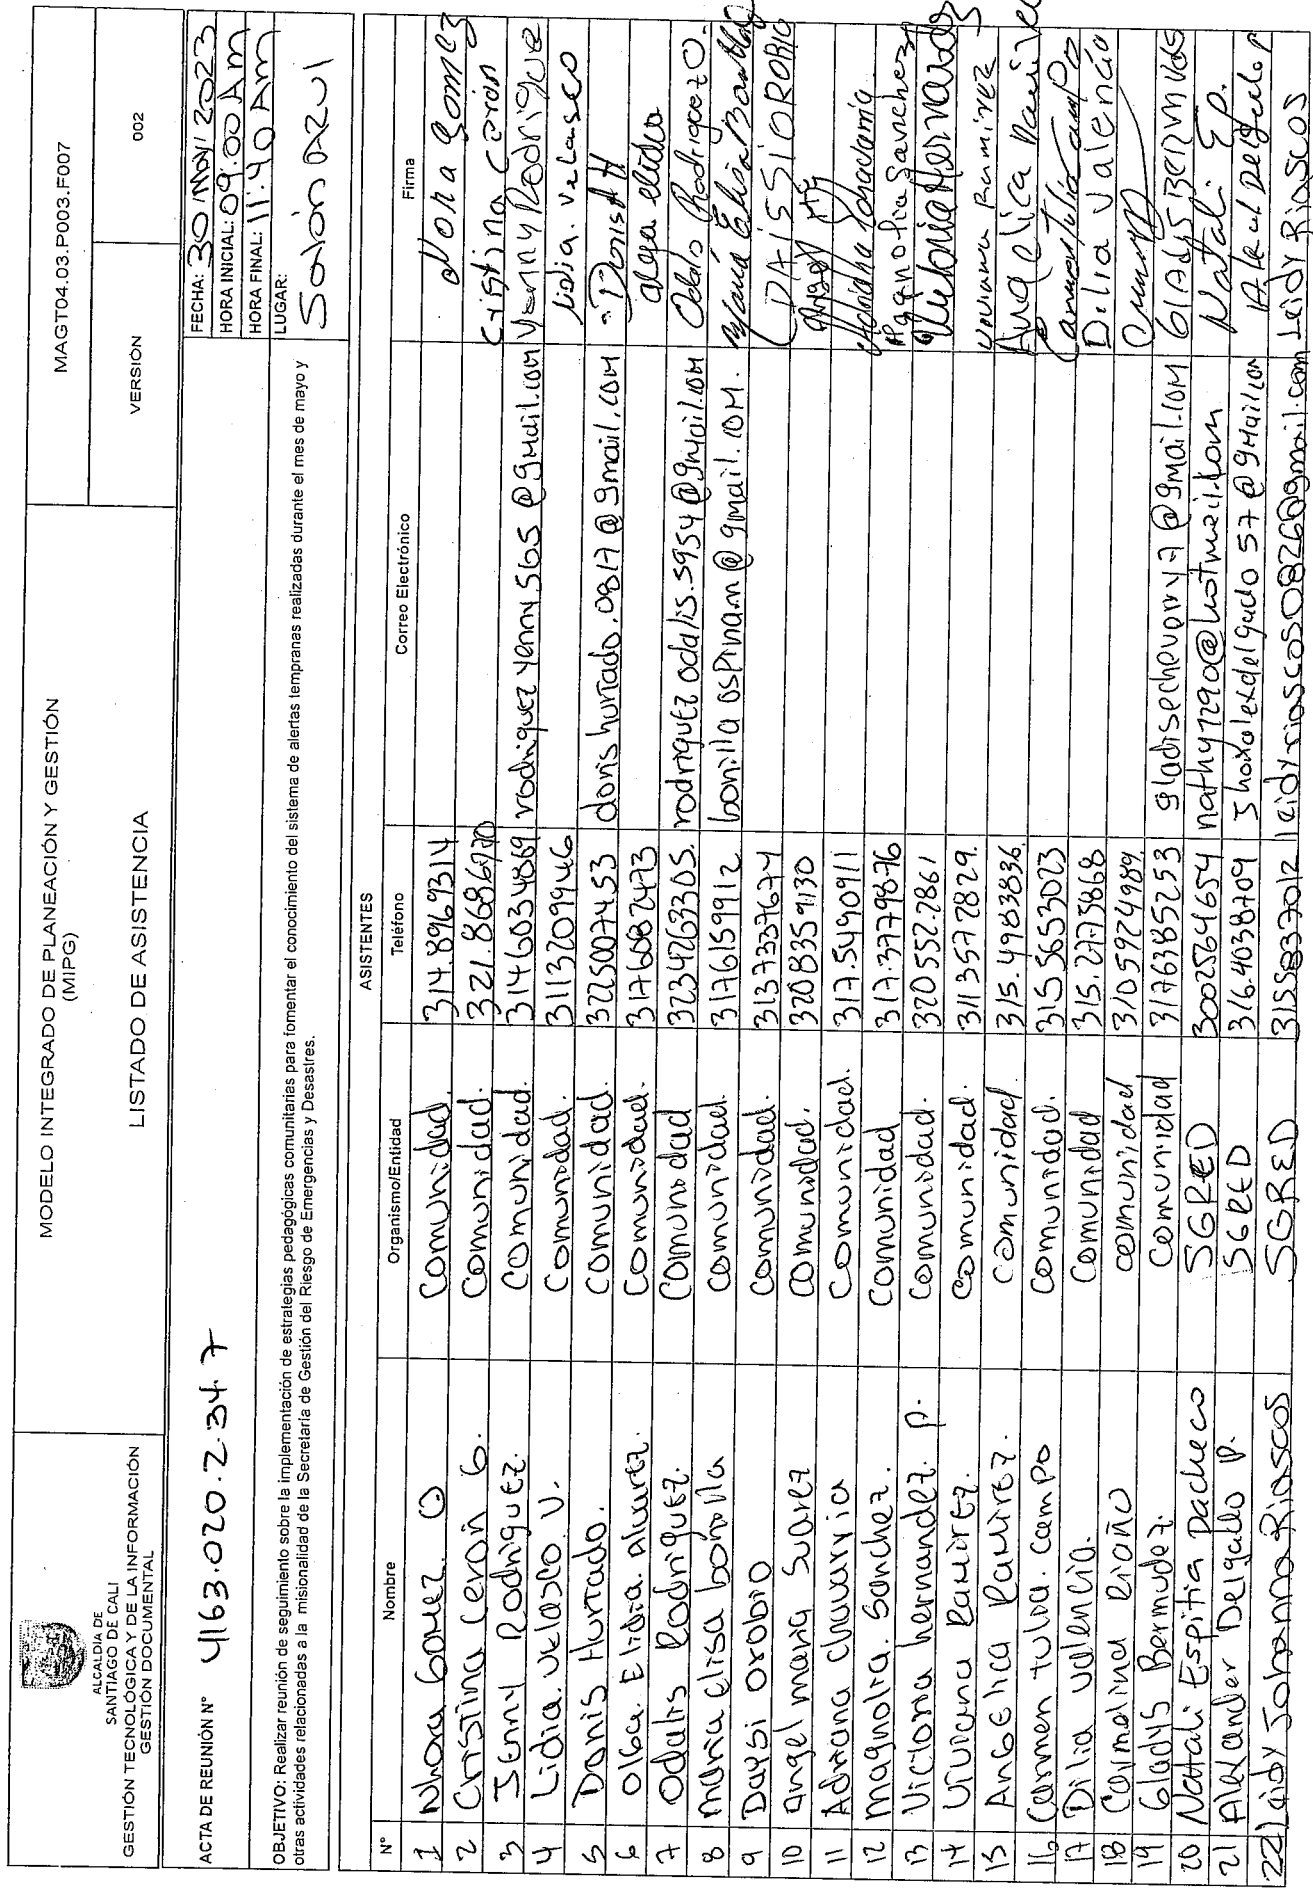 ALCALDÍA DE
SANTIAGO DE CALI
GESTIÓN TECNOLÓGICA Y DE LA INFORMACIÓN
GESTIÓN DOCUMENTAL
MODELO INTEGRADO DE PLANEACIÓN Y GESTIÓN
(MIPG)
LISTADO DE ASISTENCIA
MAGT04.03.P003.F007
VERSIÓN 002
ACTA DE REUNIÓN N° 4163.020.2.34.7
FECHA: 30 May 2023
HORA INICIAL: 09:00 Am
HORA FINAL: 11:40 Am
LUGAR:
Salón Azul
OBJETIVO: Realizar reunión de seguimiento sobre la implementación de estrategias pedagógicas comunitarias para fomentar el conocimiento del sistema de alertas tempranas realizadas durante el mes de mayo y
otras actividades relacionadas a la misionalidad de la Secretaría de Gestión del Riesgo de Emergencias y Desastres.
ASISTENTES
N° Nombre Organismo/Entidad Teléfono Correo Electrónico Firma
1 Nhora Gomez G Comunidad 314.8969314 Nora Gomez
2 Cristina Ceron G. Comunidad. 321.8686970 Cristina Cerón
3 Jenny Rodriguez. Comunidad. 3146034869 rodriguez yenny565@gmail.com Yenny Rodrigue
4 Lidia. Velasco V. Comunidad. 3113209946 Lidia. Velasco
5 Doris Hurtado. Comunidad. 3225007453 doris hurtado.0817@gmail.com Doris H
6 Olga. Elidia. Alvarez. Comunidad. 3176082473 olga elidia
7 Odalis Rodriguez. Comunidad 3234263305. rodriguez odalis.5954@gmail.com Odalis Rodriguez O.
8 Maria Elisa bonilla Comunidad. 3176159912 bonilla ospinam@gmail.com. María Elisa Bonilla
9 Daysi Orobio Comunidad. 3137337674 DAISSI OROBIO
10 Angel maria Suarez Comunidad. 3208359130 Angel
11 Adriana Chavarria Comunidad. 317.5490911 Adriana
12 Magnolia. Sanchez. Comunidad 317.3779876 Magnolia Sanchez
13 Victoria hernandez p. Comunidad. 320552.2861 Victoria Hernandez
14 Viviana Ramirez. Comunidad. 3113572829. Viviana Ramirez
15 Angelica Ramirez. Comunidad. 315.4983836 Angelica Ramirez
16 Carmen tulia. Campo Comunidad. 3155653023 Carmen Tulia Campo
17 Dilia Valencia. Comunidad 315.2775868 Dilia Valencia
18 Carmelina Riaño Comunidad 3105924989
19 Gladys Bermudez. Comunidad 3176385253 gladisecheverry7@gmail.com GLADYS BERMUDES
20 Natali Espitia Pacheco SGRED 3002564654 nathy1290@hotmail.com Natali E.P.
21 Alexander Delgado P. SGRED 316.4038709 Jhonalexdelgado57@gmail.com
22 Leidy Johanna Riascos SGRED 3155837012 leidyriascos0826@gmail.com Leidy Riascos